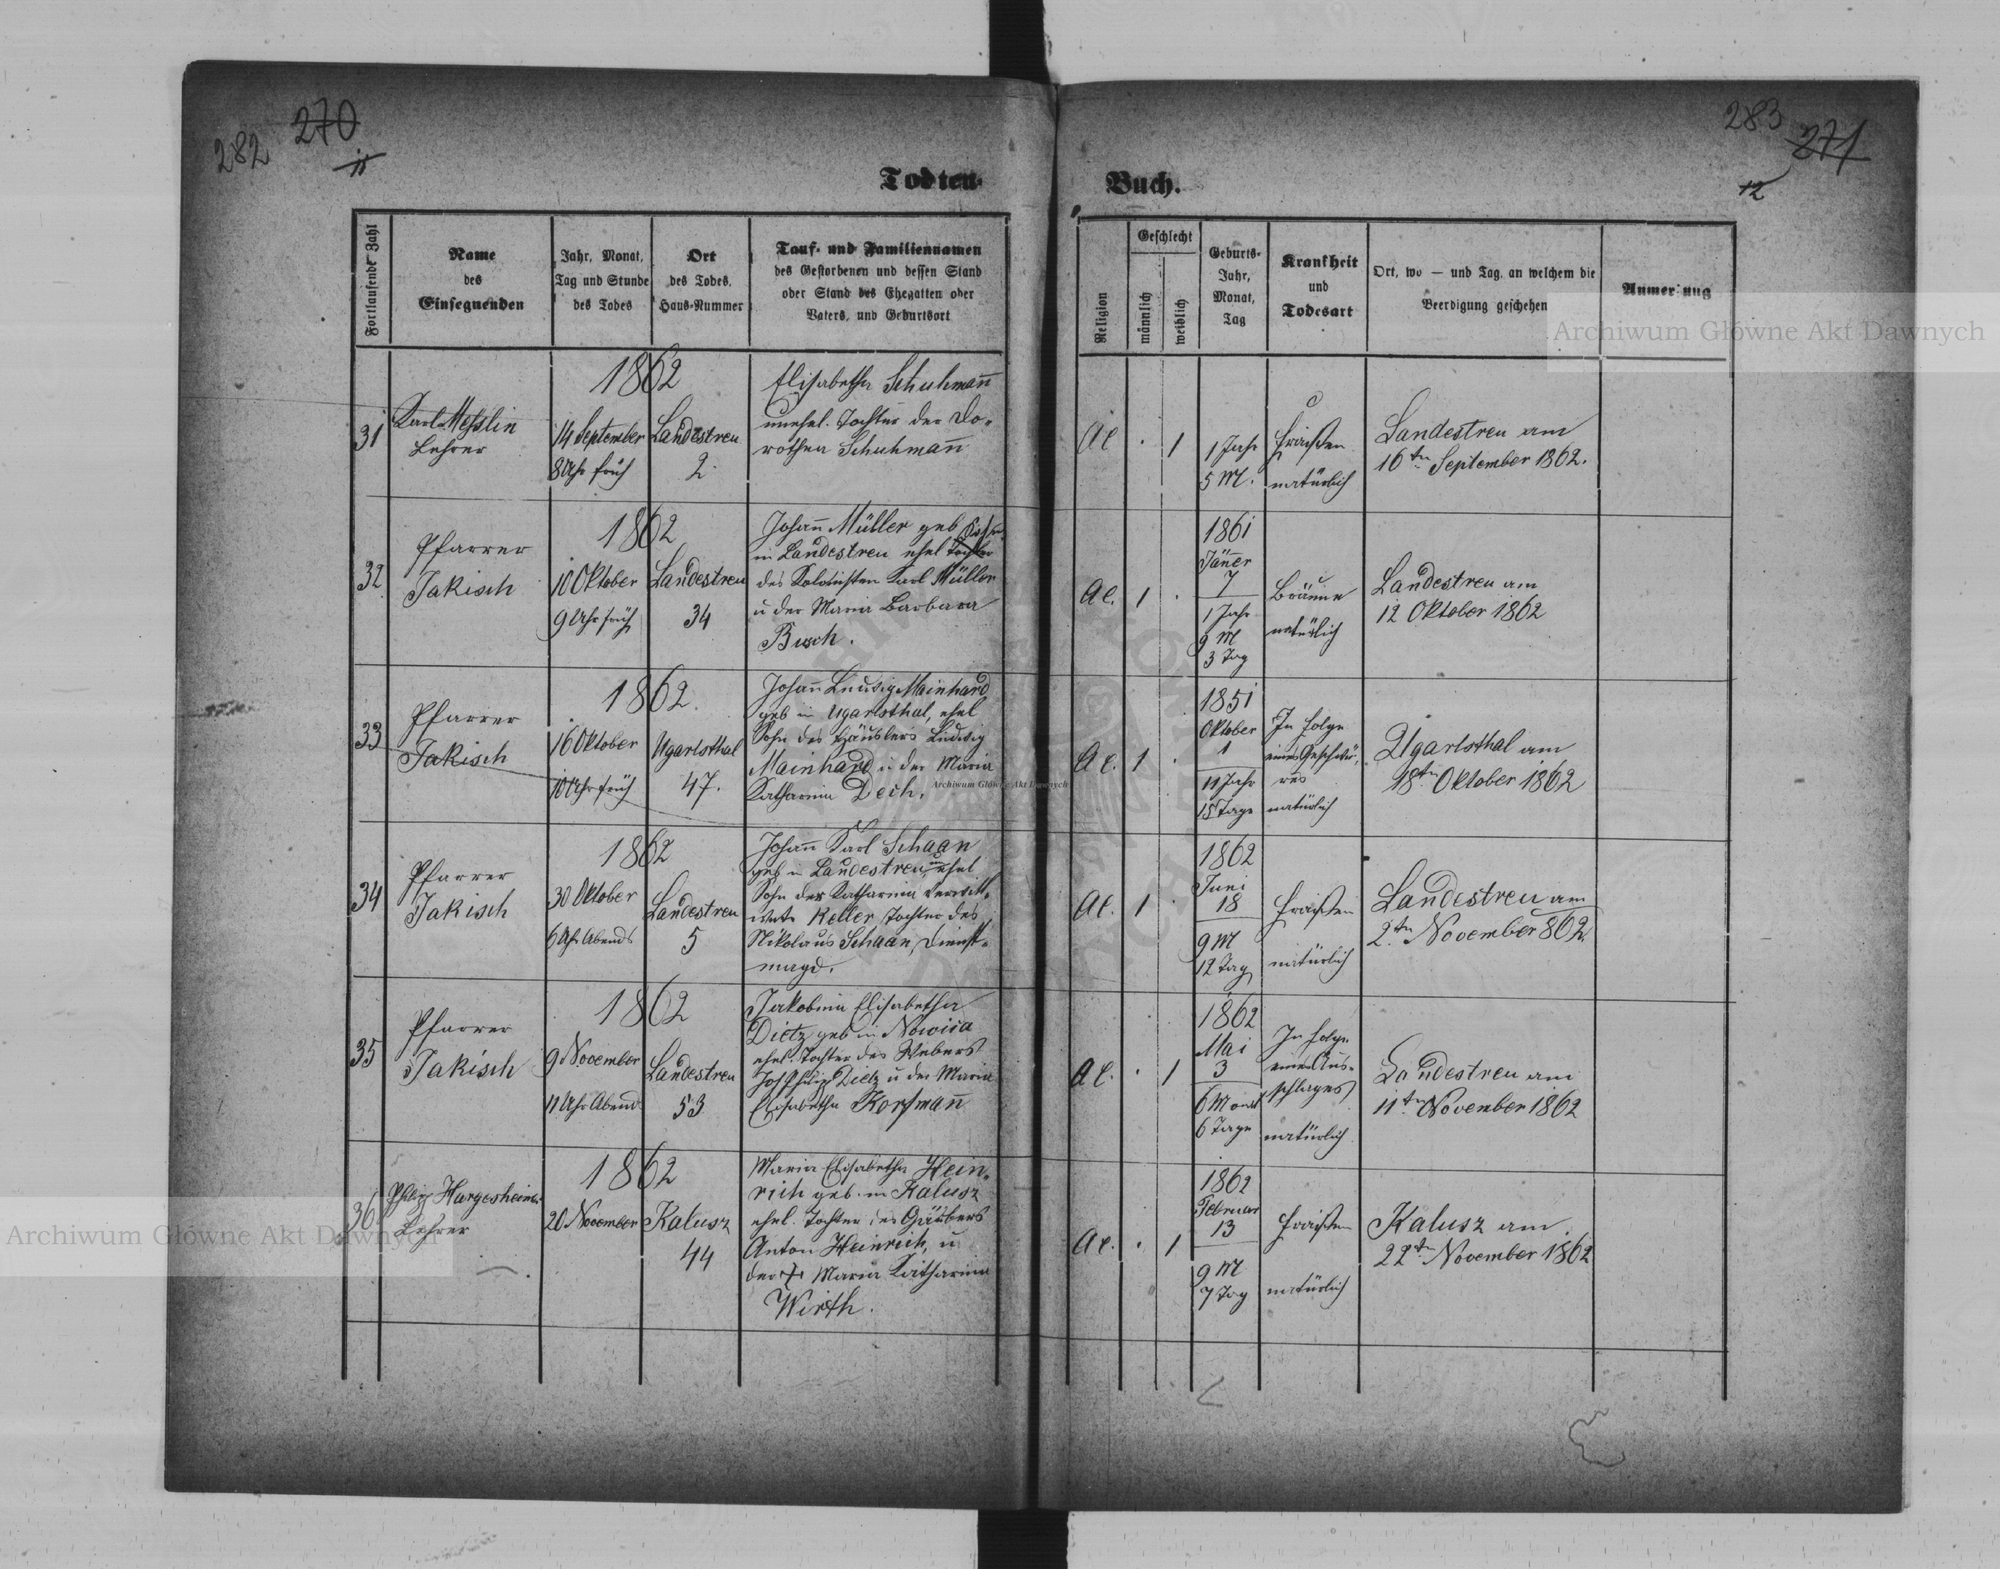 282
270
11
283
271
12
Todten-
Buch.
Fortlaufende Zahl
Name
des
Einsegnenden
Jahr, Monat,
Tag und Stunde
des Todes
Ort
des Todes,
Haus-Nummer
Tauf- und Familiennamen
des Gestorbenen und dessen Stand
oder Stand des Ehegatten oder
Vaters, und Geburtsort
Religion
Geschlecht
männlich
weiblich
Geburts-
Jahr,
Monat,
Tag
Krankheit
und
Todesart
Ort, wo — und Tag, an welchem die
Beerdigung geschehen
Anmerkung
31
Karl Messlin
Lehrer
1862
14 September
8 Uhr früh
Landestreu
2.
Elisabetha Schuhmann̄
unehel. Tochter der Do-
rothea Schuhmann̄
1
1 Jahr
5 M.
Fraisen
natürlich
Landestreu am
16ten September 1862.
32
Pfarrer
Jakisch
1862
10 Oktober
9 Uhr früh
Landestreu
34
Johan̄ Müller geb
in Landestreu ehel Sohn
des Kolonisten Karl Müller
u der Maria Barbara
Busch.
1
1861
Jän̄er
7
1 Jahr
9 M
3 Tag
Bräune
natürlich
Landestreu am
12 Oktober 1862
33
Pfarrer
Jakisch
1862.
16 Oktober
10 Uhr früh
Ugartsthal
47.
Johan̄ Ludwig Mainhard
geb in Ugartsthal, ehel
Sohn des Häuslers Ludwig
Mainhard u der Maria
Katharina Dech.
1
1851
Oktober
1
11 Jahr
15 Tage
In Folge
eines Geschwü-
res
natürlich
Ugartsthal am
18ten Oktober 1862
34
Pfarrer
Jakisch
1862
30 Oktober
6 Uhr Abends
Landestreu
5
Johan̄ Karl Schaan
geb in Landestreu, unehel
Sohn der Katharina verwitt-
wete Keller, Tochter des
Nikolaus Schaan, Dienst-
magd.
1
1862
Juni
18
9 M
12 Tag
Fraisen
natürlich
Landestreu am
2ten November 862.
35
Pfarrer
Jakisch
1862
9 November
11 Uhr Abend
Landestreu
53
Jakobina Elisabetha
Dietz geb in Nowica
ehel. Tochter des Webers
Joh Philip Dietz u der Maria
Elisabetha Korfman̄
1
1862
Mai
3
6 Monat
6 Tage
In Folge
eines Aus-
schlages
natürlich
Landestreu am
11ten November 1862
36
Philipp Hargesheimer
Lehrer
1862
20 November
Kalusz
44
Maria Elisabetha Hein-
rich geb. in Kalusz
ehel. Tochter des
Anton Heinrich, u
der + Maria Katharina
Wirth.
1
1862
Februar
13
9 M
7 Tag
Fraisen
natürlich
Kalusz am
22ten November 1862
Archiwum Główne Akt Dawnych
Archiwum Główne Akt Dawnych
Archiwum Główne Akt Dawnych